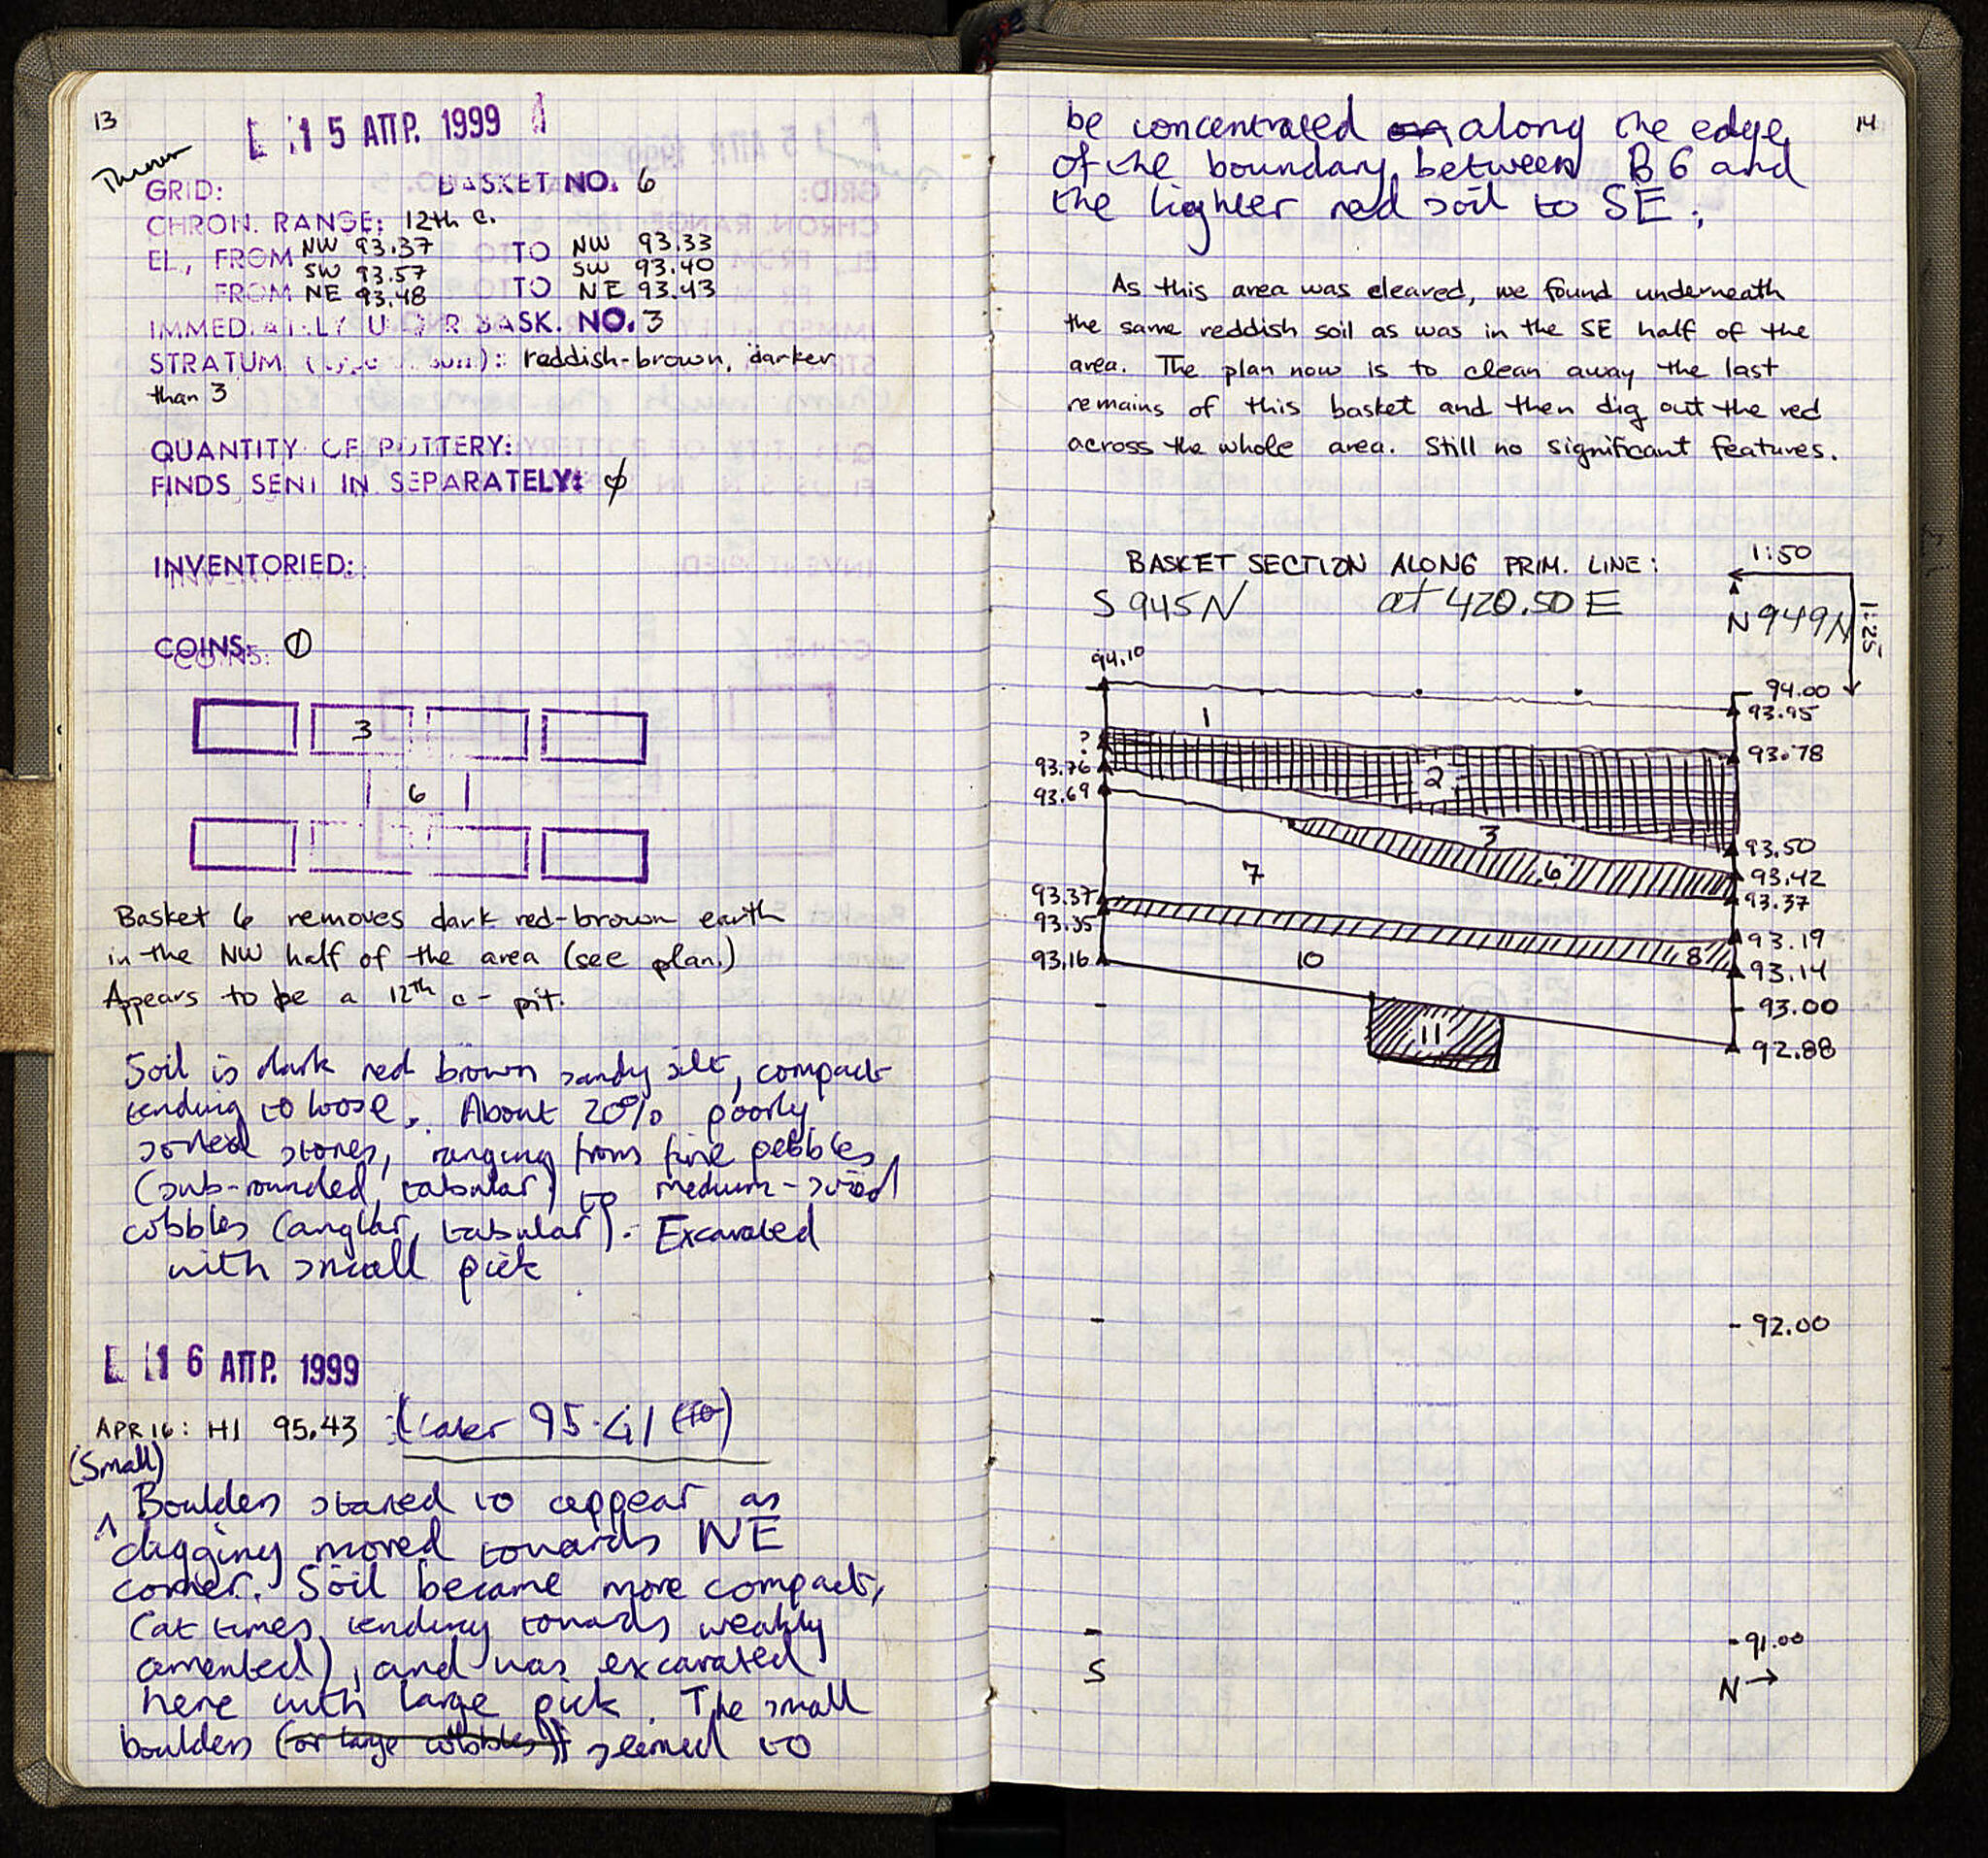 13
15 ΑΠΡ. 1999
Thurs
GRID: BASKET NO. 6
CHRON. RANGE: 12th c.
EL., FROM NW 93.37 TO NW 93.33
SW 93.57 SW 93.40
FROM NE 93.48 TO NE 93.43
IMMEDIATELY UNDER BASK. NO. 3
STRATUM (type of soil): reddish-brown, darker
than 3
QUANTITY OF POTTERY:
FINDS SENT IN SEPARATELY: ∅
INVENTORIED:
COINS: ∅
3
6
Basket 6 removes dark red-brown earth
in the NW half of the area (see plan.)
Appears to be a 12th c- pit.
Soil is dark red brown sandy silt, compact
tending to loose. About 20% poorly
sorted stones, ranging from fine pebbles
(sub-rounded, tabular) to medium-sized
cobbles (anglar, tabular). Excavated
with small pick
16 ΑΠΡ. 1999
APR 16: HI 95.43 (later 95.41 (10))
(Small)
^ Boulders started to appear as
digging moved towards NE
corner. Soil became more compact,
(at times tending towards weakly
cemented), and was excavated
here with large pick. The small
boulders (or large cobbles) seemed to
14
be concentrated on along the edge
of the boundary between B6 and
the lighter red soil to SE.
As this area was cleared, we found underneath
the same reddish soil as was in the SE half of the
area. The plan now is to clean away the last
remains of this basket and then dig out the red
across the whole area. Still no significant features.
BASKET SECTION ALONG PRIM. LINE:
1:50
S 945N at 420.50 E
N 949N
1:25
94.10
94.00
93.95
1
?
93.78
93.76
2
93.69
3
93.50
7
6
93.42
93.37
93.37
93.35
93.19
8
93.14
93.16
10
93.00
11
92.88
92.00
91.00
S
N →